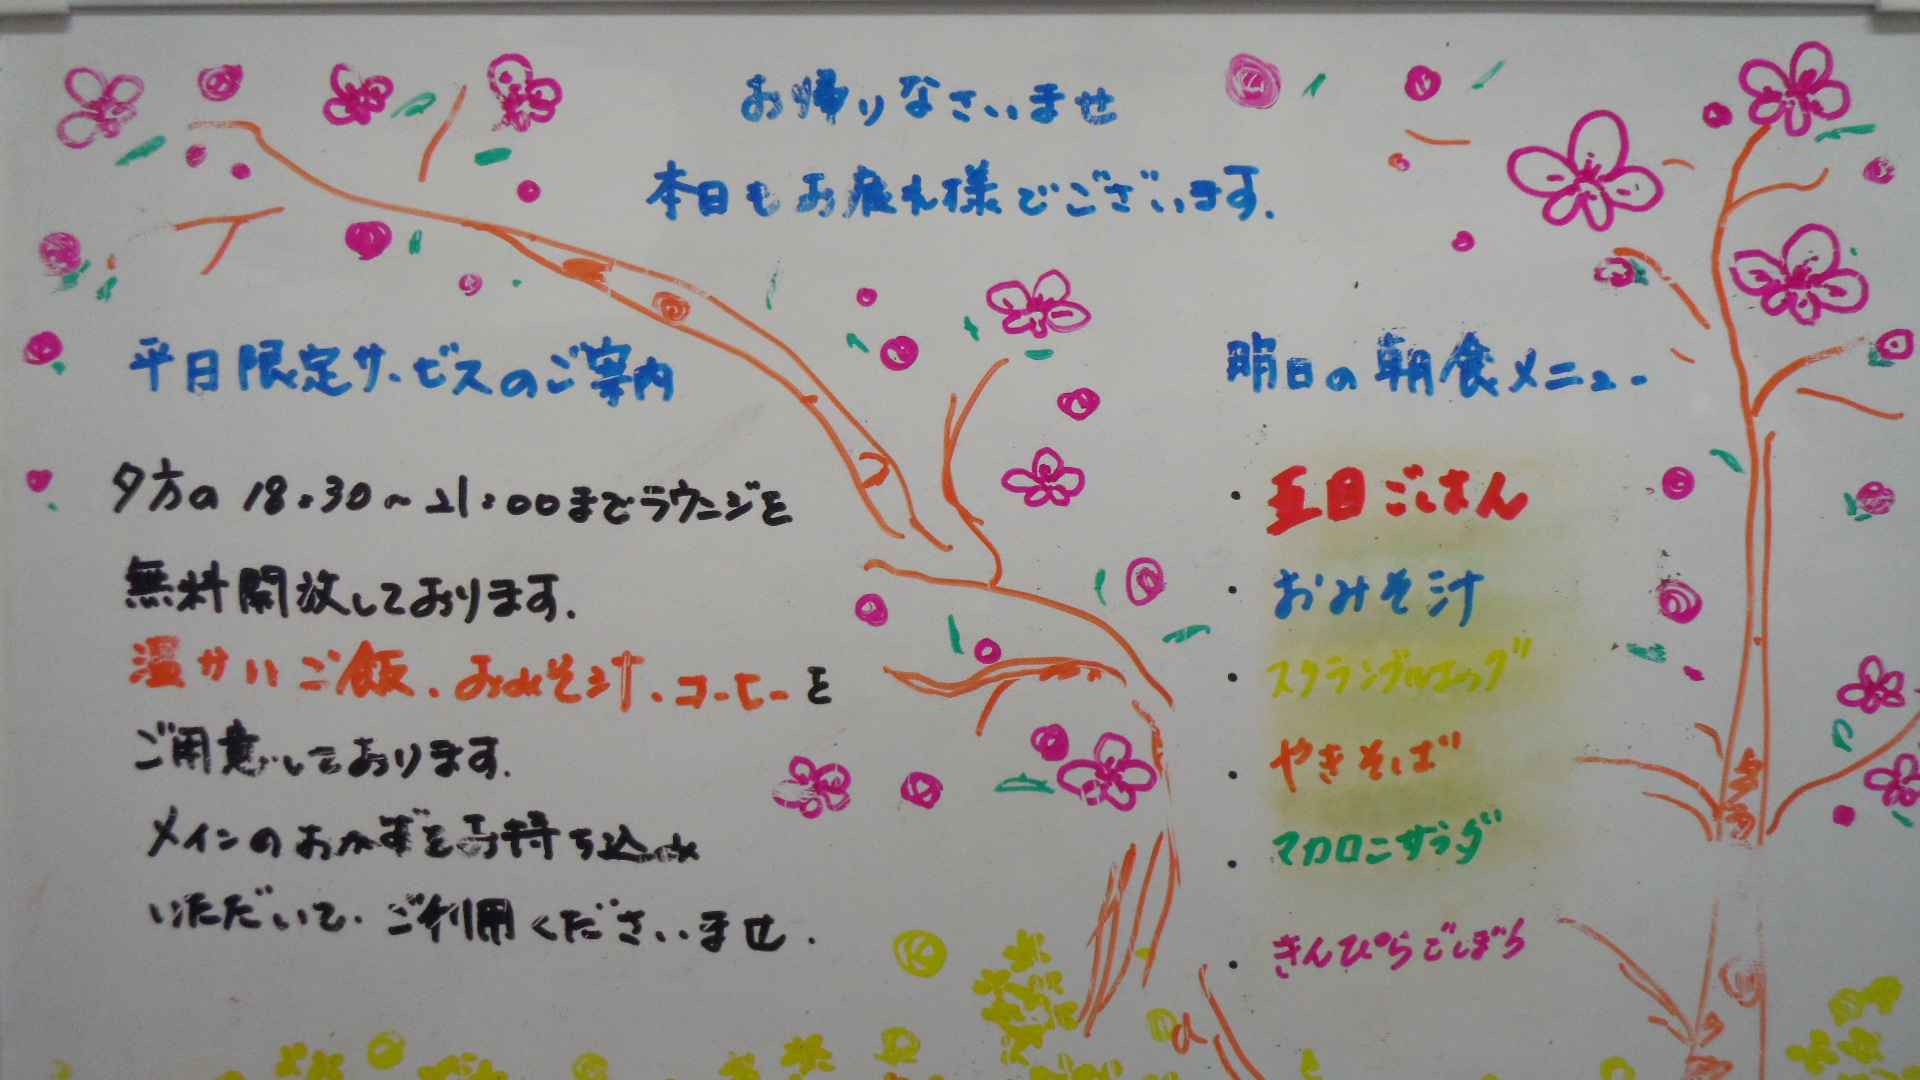 お帰りなさいませ
本日もお疲れ様でございます.
平日限定サービスのご案内
夕方の18:30~21:00までラウンジを
無料開放しております.
温かいご飯、おみそ汁、コーヒーを
ご用意しております.
メインのおかずをお持ち込み
いただいて、ご利用くださいませ.
明日の朝食メニュー
・五目ごはん
・おみそ汁
・スクランブルエッグ
・やきそば
・マカロニサラダ
・きんぴらごぼう